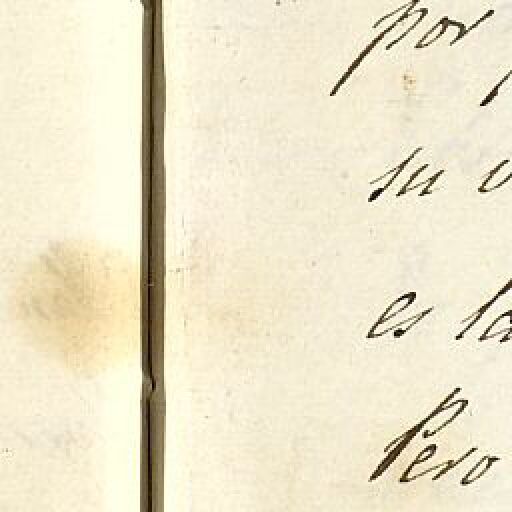 por
su
es la
Pero